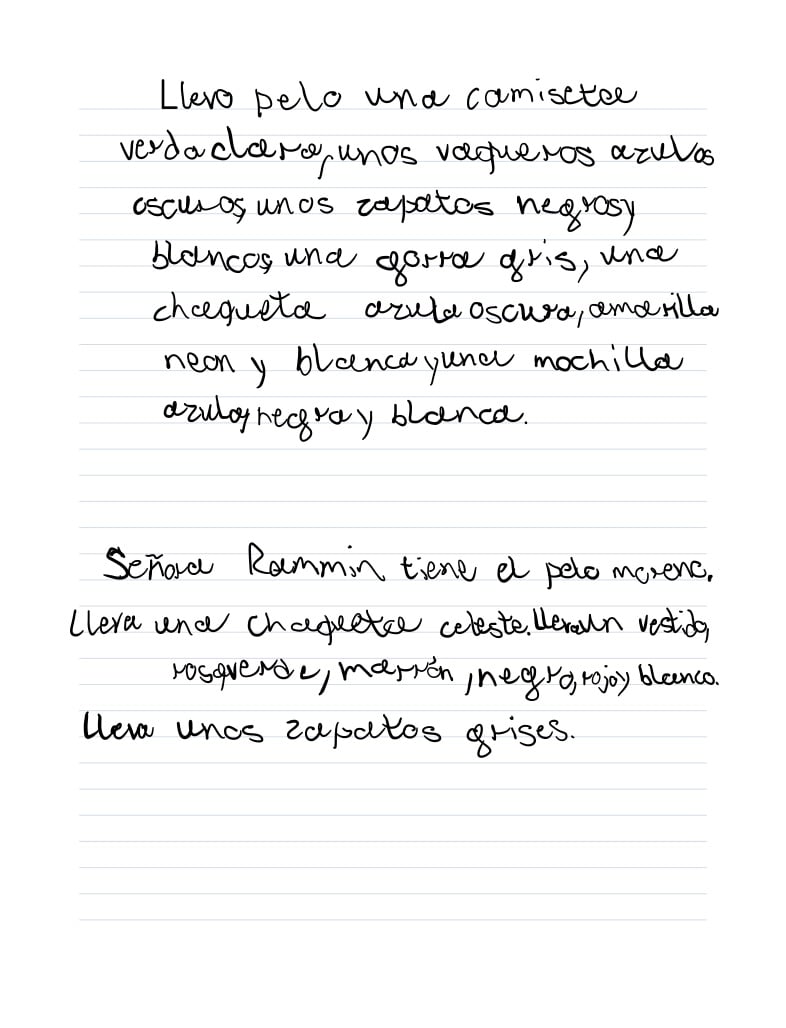 Llevo pelo una camiseta
verda clara, unos vaqueros azulos
oscuros, unos zapatos negros y
blancos, una gorra gris, una
chaqueta azula oscura, amarilla
neon y blanca y una mochilla
azulo, negra y blanca.
Señora Rammin tiene el pelo moreno.
Lleva una chaqueta celeste. Lleva un vestido,
rosa, verde, marrón, negro, rojo y blanco.
Lleva unos zapatos grises.